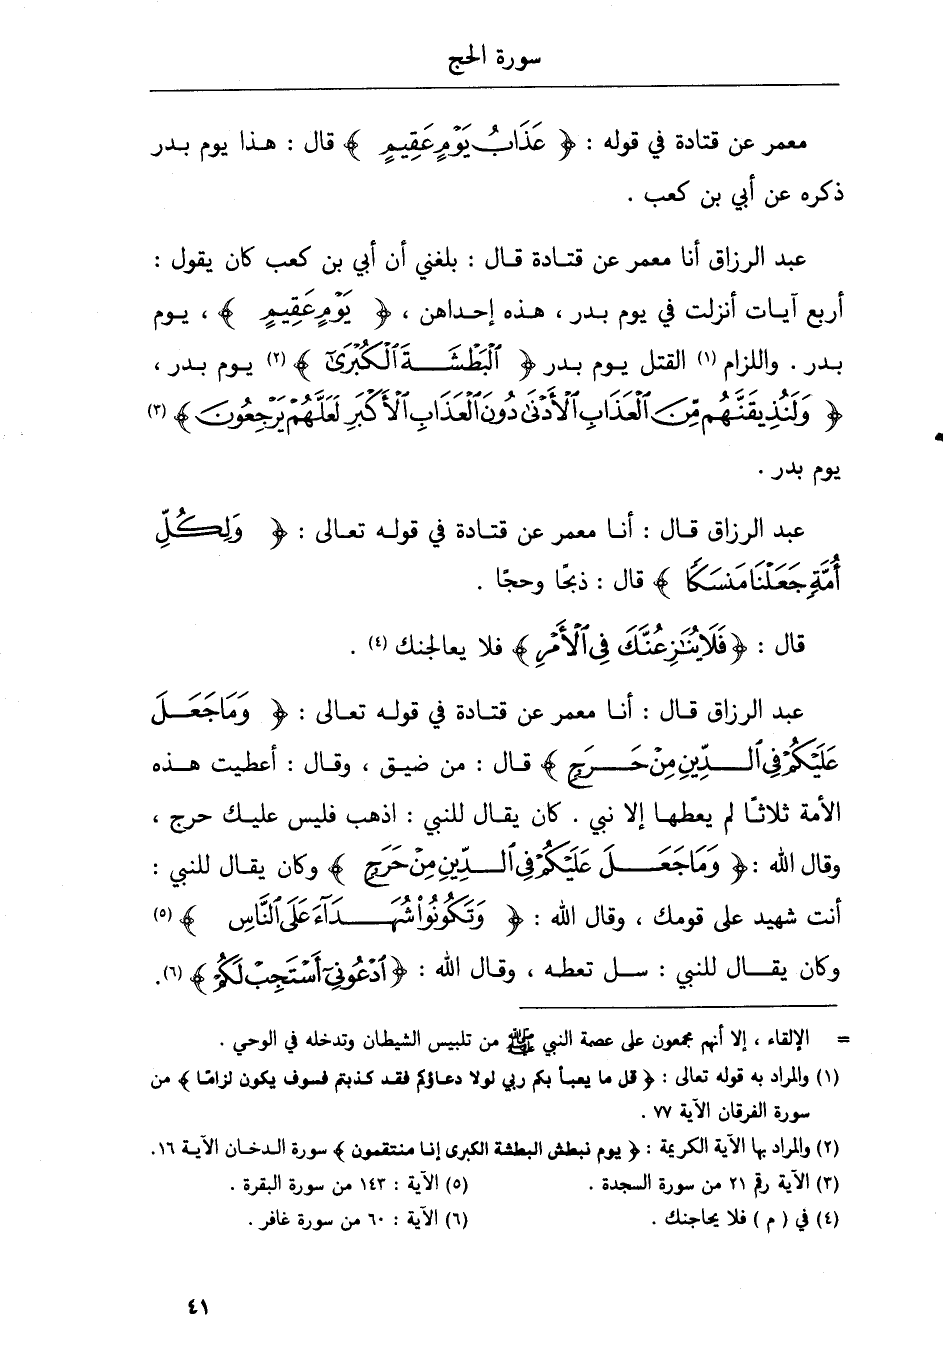 سورة الحج
معمر عن قتادة في قوله : ﴿ عَذَابُ يَوْمٍ عَقِيمٍ ﴾ قال : هذا يوم بدر
ذكره عن أبي بن كعب .
عبد الرزاق أنا معمر عن قتادة قال : بلغني أن أبي بن كعب كان يقول :
أربع آيات أنزلت في يوم بدر ، هذه إحداهن ، ﴿ يَوْمٍ عَقِيمٍ ﴾ ، يوم
بدر . واللزام (١) القتل يوم بدر ﴿ ٱلْبَطْشَةَ ٱلْكُبْرَىٰٓ ﴾ (٢) يوم بدر ،
﴿ وَلَنُذِيقَنَّهُم مِّنَ ٱلْعَذَابِ ٱلْأَدْنَىٰ دُونَ ٱلْعَذَابِ ٱلْأَكْبَرِ لَعَلَّهُمْ يَرْجِعُونَ ﴾ (٣)
يوم بدر .
عبد الرزاق قال : أنا معمر عن قتادة في قوله تعالى : ﴿ وَلِكُلِّ
أُمَّةٍ جَعَلْنَا مَنسَكًا ﴾ قال : ذبحًا وحجًا .
قال : ﴿ فَلَا يُنَٰزِعُنَّكَ فِى ٱلْأَمْرِ ﴾ فلا يعالجنك (٤) .
عبد الرزاق قال : أنا معمر عن قتادة في قوله تعالى : ﴿ وَمَا جَعَلَ
عَلَيْكُمْ فِى ٱلدِّينِ مِنْ حَرَجٍ ﴾ قال : من ضيق ، وقال : أعطيت هذه
الأمة ثلاثًا لم يعطها إلا نبي . كان يقال للنبي : اذهب فليس عليك حرج ،
وقال الله : ﴿ وَمَا جَعَلَ عَلَيْكُمْ فِى ٱلدِّينِ مِنْ حَرَجٍ ﴾ وكان يقال للنبي :
أنت شهيد على قومك ، وقال الله : ﴿ وَتَكُونُوا۟ شُهَدَآءَ عَلَى ٱلنَّاسِ ﴾ (٥)
وكان يقال للنبي : سل تعطه ، وقال الله : ﴿ ٱدْعُونِىٓ أَسْتَجِبْ لَكُمْ ﴾ (٦).
= الإلقاء ، إلا أنهم مجمعون على عصمة النبي ﷺ من تلبيس الشيطان وتدخله في الوحي .
(١) والمراد به قوله تعالى : ﴿ قل ما يعبأ بكم ربي لولا دعاؤكم فقد كذبتم فسوف يكون لزامًا ﴾ من
سورة الفرقان الآية ٧٧ .
(٢) والمراد بها الآية الكريمة : ﴿ يوم نبطش البطشة الكبرى إنا منتقمون ﴾ سورة الدخان الآية ١٦.
(٣) الآية رقم ٢١ من سورة السجدة . (٥) الآية : ١٤٣ من سورة البقرة .
(٤) في ( م ) فلا يحاجنك . (٦) الآية : ٦٠ من سورة غافر .
٤١